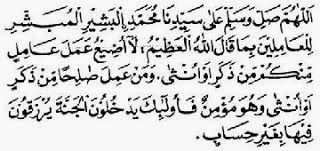 اَللّٰهُمَّ صَلِّ وَسَلِّمْ عَلٰى سَيِّدِنَا مُحَمَّدٍ ࣙالْبَشِيْرِ الْمُبَشِّرِ
لِلْعَامِلِيْنَ بِمَا قَالَ اللّٰهُ الْعَظِيْمُ، لَا أُضِيْعُ عَمَلَ عَامِلٍ
مِنْكُمْ مِنْ ذَكَرٍ اَوْ اُنْثٰى، وَمَنْ عَمِلَ صَالِحًا مِنْ ذَكَرٍ
اَوْ اُنْثٰى وَهُوَ مُؤْمِنٌ فَاُولٰئِكَ يَدْخُلُوْنَ الْجَنَّةَ يُرْزَقُوْنَ
فِيْهَا بِغَيْرِ حِسَابٍ.